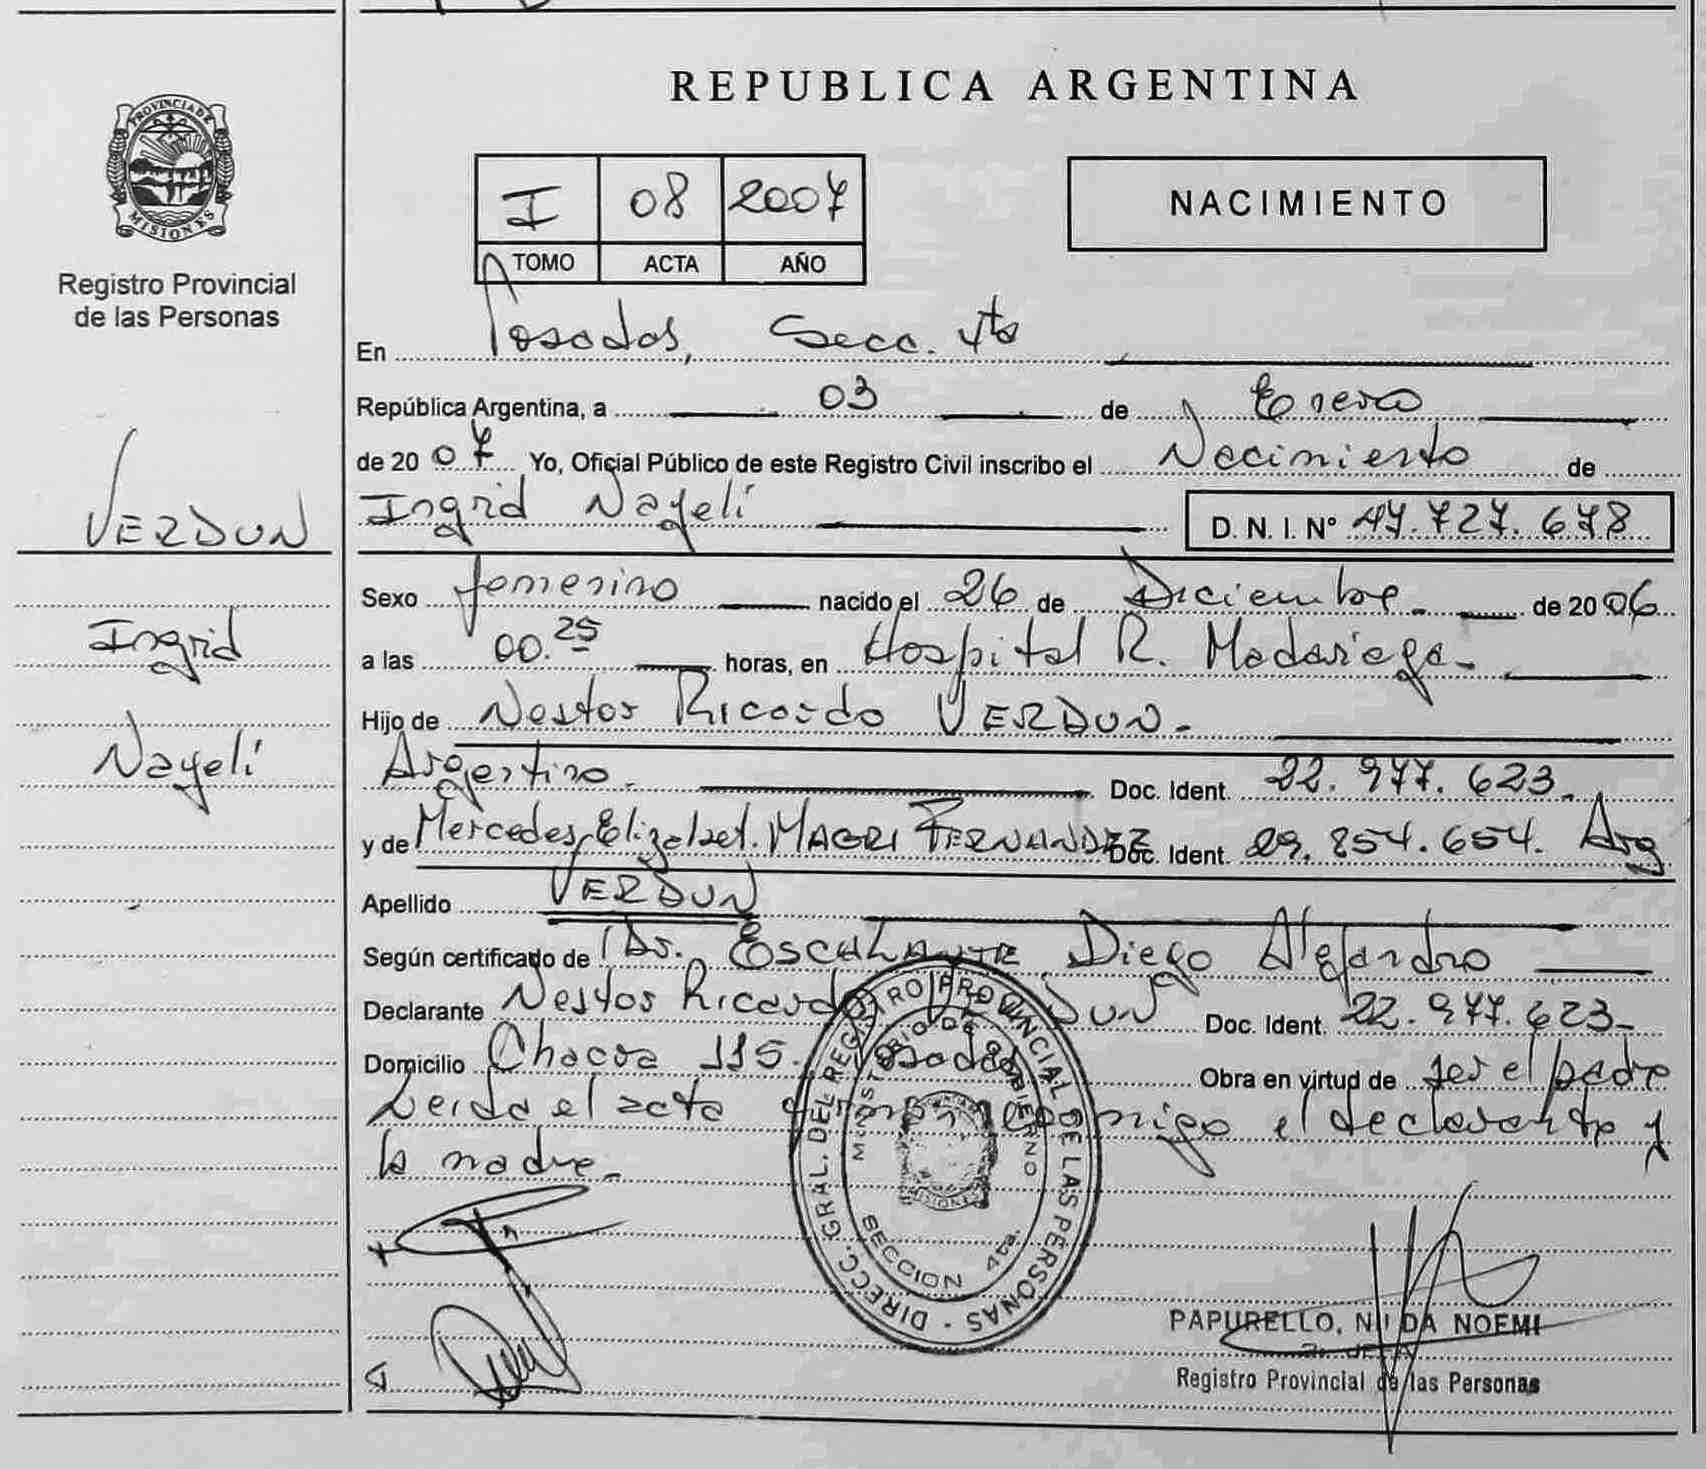 PROVINCIA DE
MISIONES
Registro Provincial
de las Personas
VERDUN
Ingrid
Nayelí
REPUBLICA ARGENTINA
I 08 2007
TOMO ACTA AÑO
NACIMIENTO
En Posadas, Secc. 4ta
República Argentina, a 03 de Enero
de 2007 Yo, Oficial Público de este Registro Civil inscribo el Nacimiento de
Ingrid Nayelí D. N. I. Nº 47.727.678
Sexo femenino nacido el 26 de Diciembre. de 2006
a las 00.25 horas, en Hospital R. Madariaga-
Hijo de Nestor Ricardo VERDUN.-
Argentino. Doc. Ident. 22.977.623.
y de Mercedes Elizabet. MAGRI FERNANDEZ Doc. Ident. 29.854.654. Arg
Apellido VERDUN
Según certificado de Dr. ESCALANTE Diego Alejandro
Declarante Nestor Ricardo Doc. Ident. 22.977.623-
Domicilio Chacra 115. Posadas Obra en virtud de ser el padre
Leida el acta conmigo el declarante y
la madre.-
DIRECC. GRAL. DEL REGISTRO PROVINCIAL DE LAS PERSONAS -
MINISTERIO DE GOBIERNO
MISIONES
SECCION 4ta.
PAPURELLO, NILDA NOEMI
Registro Provincial de las Personas